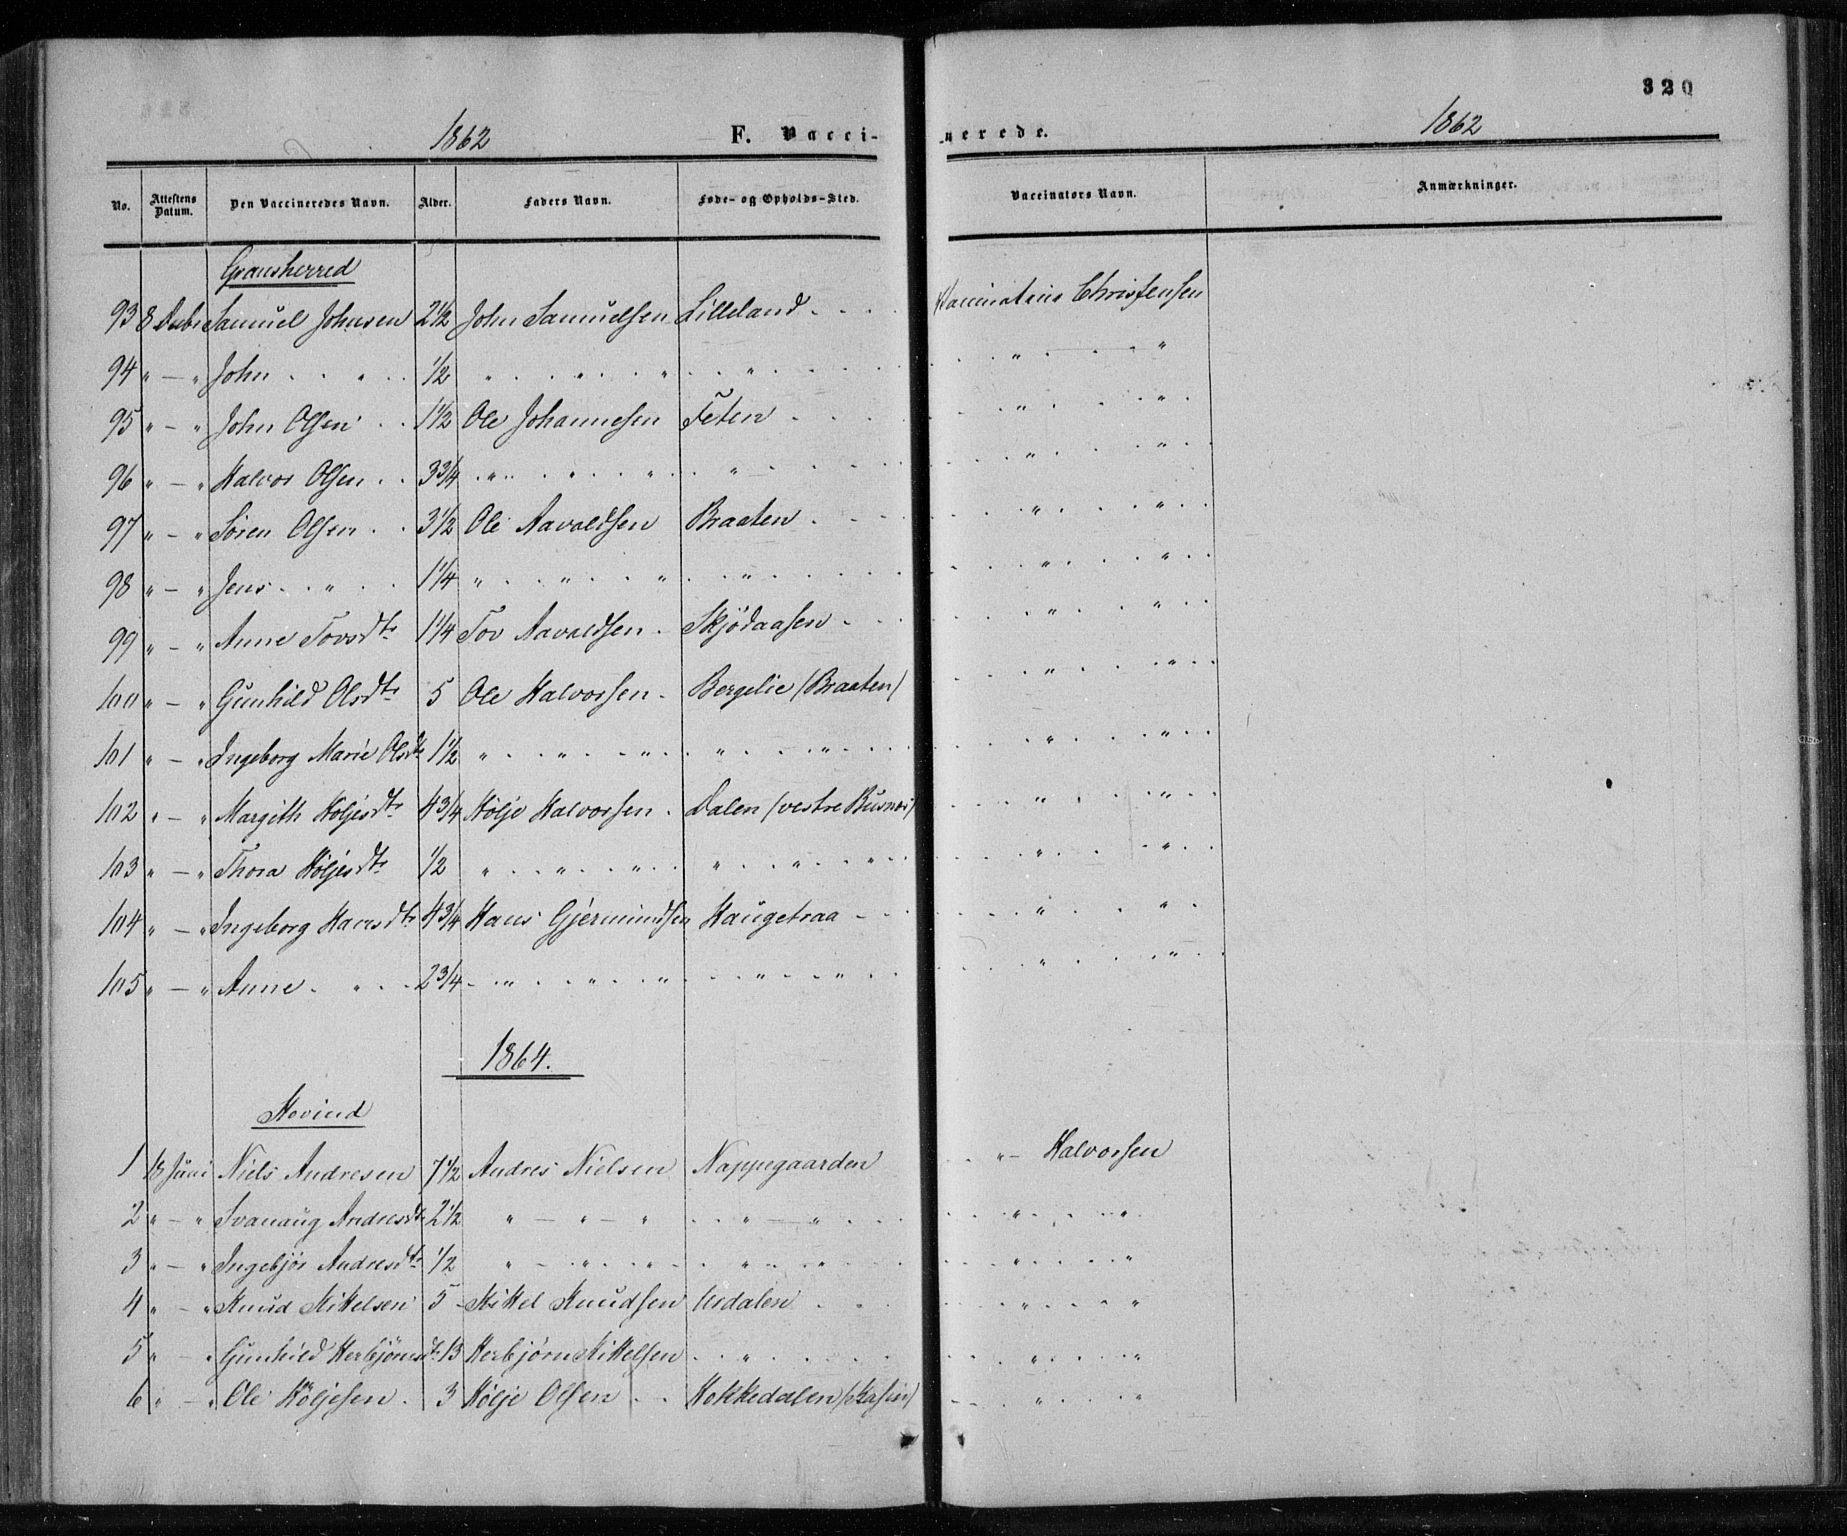 320
1862 F. Vacci- -nerede. 1862
No. Attestens Datum. Den Vaccineredes Navn. Alder. Faders Navn. Føde- og Opholds-Sted. Vaccinators Navn. Anmærkninger.
Gransherred
93 8 Decbr Samuel Johnsen 2 1/2 John Samuelsen Lilleland . . . Vaccinatrice Christensen
94 " — " John . . " . . 1/2 " . . " . . " . . " . . " . . "
95 " — " John Olsen . . 1 1/2 Ole Johannesen Feten . . . " . . "
96 " — " Halvor Olsen . . 3 3/4 . " . . " . . " . . " . . " . . "
97 " — " Søren Olsen . . 3 1/2 Ole Aavaldsen Braaten . . . " . . "
98 " — " Jens . . " . . 1 1/4 " . . " . . " . . " . . " . . "
99 " — " Anne Tovsdtr 1 1/4 Tov Aavaldsen . Skjødaasen . . . " . . "
100 " — " Gunhild Olsdtr 5 Ole Halvorsen . Bergelie /Braaten/ . . " . . "
101 " — " Ingeborg Marie Olsdtr 1 1/2 " . . " . . " . . " . . " . . " . . "
102 " — " Margith Høljesdtr 4 3/4 Hølje Halvorsen . Dalen /vestre Busnes/ . . " . . "
103 " — " Thora Høljesdtr 1/2 " . . " . . " . . " . . " . . " . . "
104 " — " Ingeborg Hansdtr 4 3/4 Hans Gjermundsen Haugetraa . . . " . . "
105 " — " Anne . . " . . 2 3/4 . . " . . " . . " . . " . . " . . " . . "
1864.
Hovind
1 18 Juni Niels Andresen 7 1/2 Andres Nielsen Nappegaarden . . " — Halvorsen
2 " — " Svanaug Andresdtr 2 1/2 " — " — " . . " — " . . " . . "
3 " — " Ingebjør Andresdtr 1/2 " — " . . " . . " . . " . . " . . "
4 " — " Knud Kittelsen 5 Kittel Knudsen Urdalen . . . " . . "
5 " — " Gunhild Herbjørnsdtr 13 Herbjørn Kittelsen . . " . . " . . "
6 " — " Ole Høljesen . 3 Hølje Olsen . . Kokkedalen . . " . . "